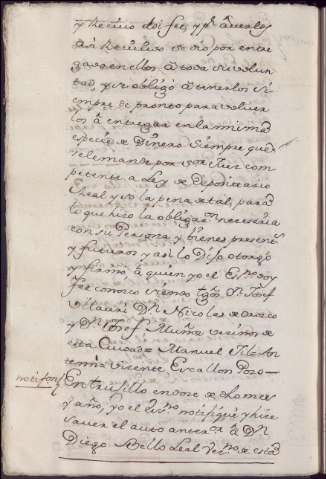 y Recivio doi fee, y pr averlos
asi Recivido se dio por entre
gado en ellos a toda su volun
tad, y se obligó a tenerlos si
empre de pronto para volver
los á entregar en la misma
especie de dinero siempre que
se le mande por sor Juez com
petente a Ley de Depositario
Rl y so la pena de tal, para
lo que hizo la obligaon necesaria
con su Persona y bienes presents
y futuros y asi lo Dijo otorgó
y firmó, á quien yo el Esno doy
fee conosco siendo tgos Dn Josf
Dn Nicolas de
y Dn Josef vecinos de
esta Ciudad = Manuel
Vicente Escallon
notifon En truxillo en onse de dho mes
y año, yo el Esno notifiqué y hice
saver el auto anteor a Dn
Diego Bello Leal vecno de esta